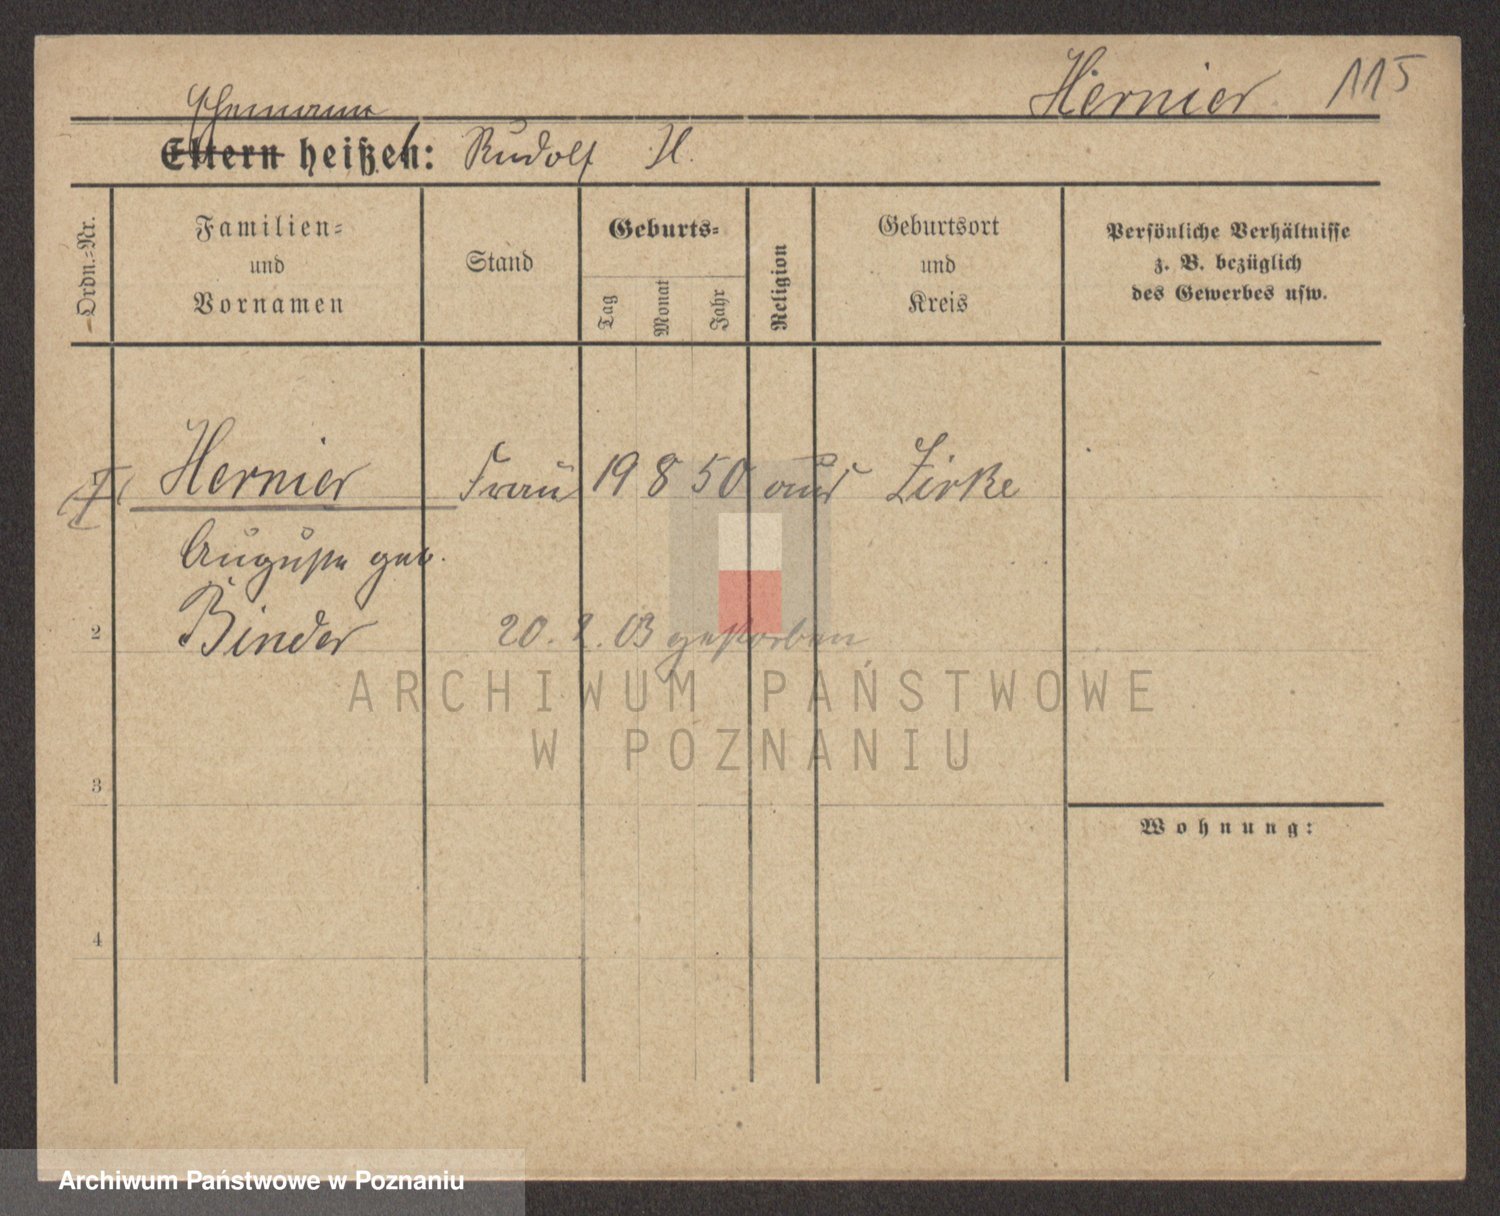 Hernier 115
Ehemann
Eltern heißen: Rudolf H.
Ordn.-Nr.
Familien-
und
Vornamen
Stand
Geburts-
Tag
Monat
Jahr
Religion
Geburtsort
und
Kreis
Persönliche Verhältnisse
z. B. bezüglich
des Gewerbes usw.
Hernier Frau 19 8 50 Zirke
Auguste geb.
2 Binder 20. 2. 03 gestorben
ARCHIWUM PAŃSTWOWE
W POZNANIU
3
Wohnung:
4
Archiwum Państwowe w Poznaniu